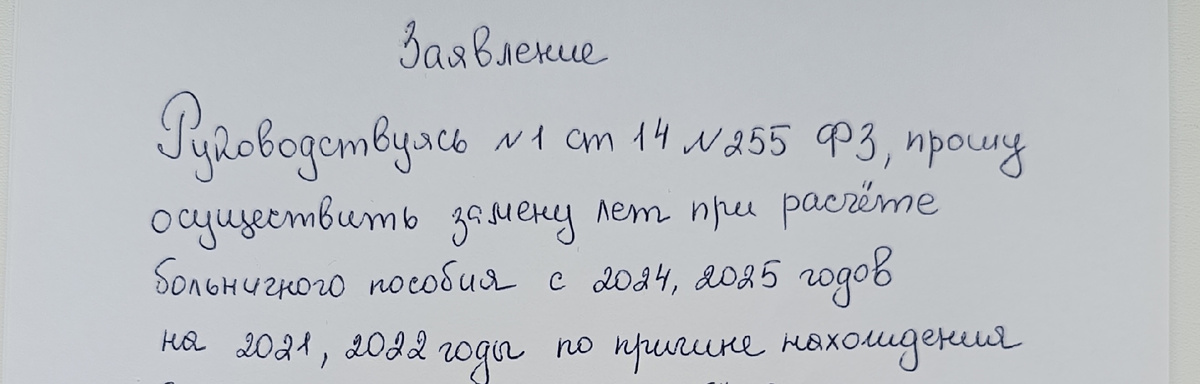 Заявление
Руководствуясь №1 ст 14 №255 ФЗ, прошу
осуществить замену лет при расчёте
больничного пособия с 2024, 2025 годов
на 2021, 2022 годы по причине нахождения